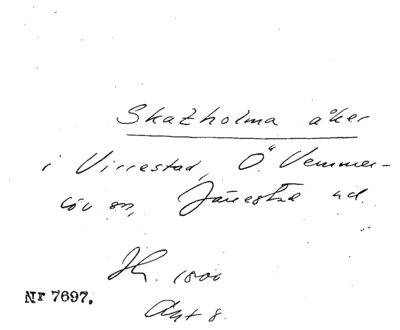 Skatholma åker
i Virrestad, Ö. Vemmer-
löv sn, Järrestad hd.
Jb. 1800
Akt 8.
Nr 7697.